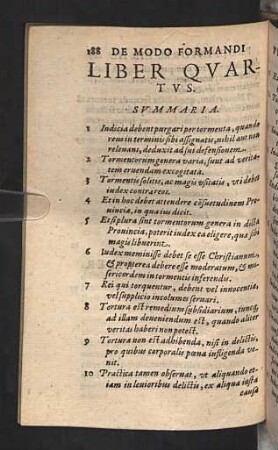 188 DE MODO FORMANDI
LIBER QVAR-
TVS.
SVMMARIA.
1 Indicia debent purgari per tormenta, quando
reus in terminis sibi assignatis, nihil aut non
releuans, deduxit ad sui defensionem.
2 Tormentorum genera varia, sunt ad verita-
tem eruendam excogitata.
3 Tormentis solitis, ac magis vsitatis, vti debet
iudex contra reos.
4 Et in hoc debet attendere cõsuetudinem Pro-
uincia, in qua ius dicit.
5 Et si plura sint tormentorum genera in dicta
Prouincia, poterit iudex ea eligere, qua sibi
magis libuerint.
6 Iudex meminisse debet se esse Christianum,
& propterea debere esse moderatum, & mi-
sericordem in tormentis inferendis.
7 Rei qui torquentur, debent vel innocentia,
vel supplicio incolumes seruari.
8 Tortura est remedium subsidiarium, tuncq;
ad illam deueniendum est, quando aliter
veritas haberi non potest.
9 Tortura non est adhibenda, nisi in delictis,
pro quibus corporalis pœna infligenda ve-
nit.
10 Practica tamen obseruat, vt aliquando et-
iam in leuioribus delictis, ex aliqua iusta
causa